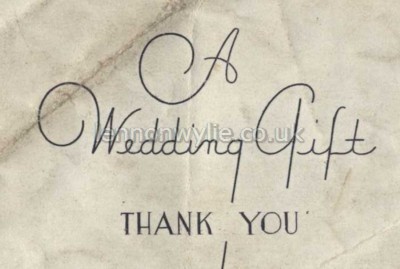 A
Wedding Gift
lennonwylie.co.uk
THANK YOU